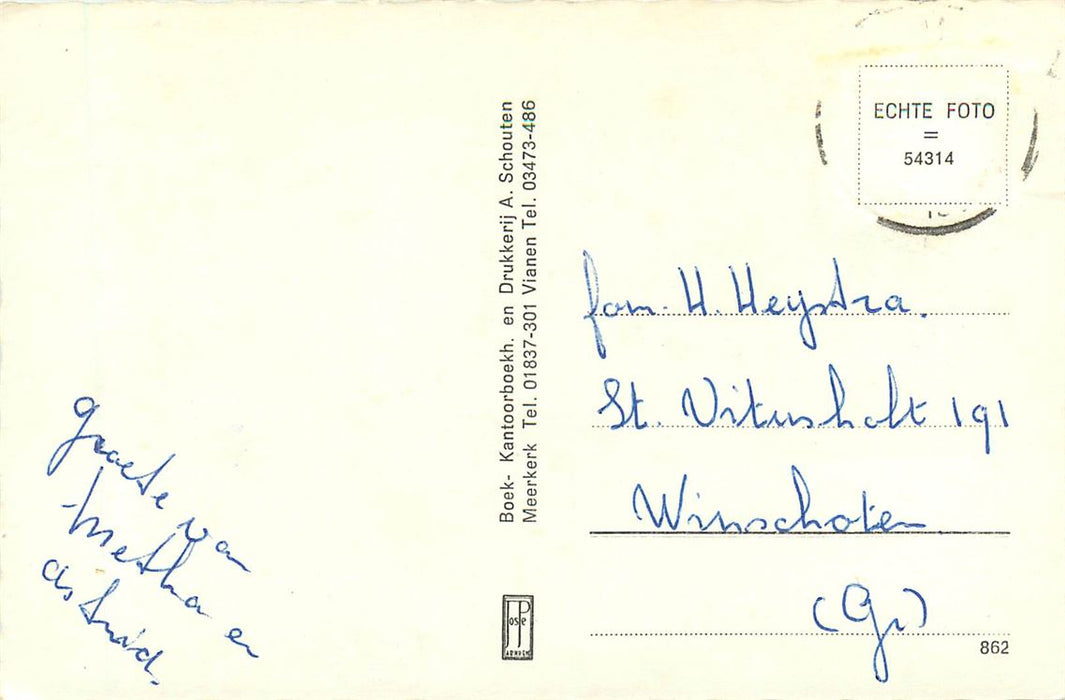 ECHTE FOTO
=
54314
Boek- Kantoorboekh. en Drukkerij A. Schouten
Meerkerk Tel. 01837-301 Vianen Tel. 03473-486
fam. H. Heystra.
St. Vitusholt 191
Winschoten
(Gr)
groete van
Metha en
astrid.
JosPé
ARNHEM
862